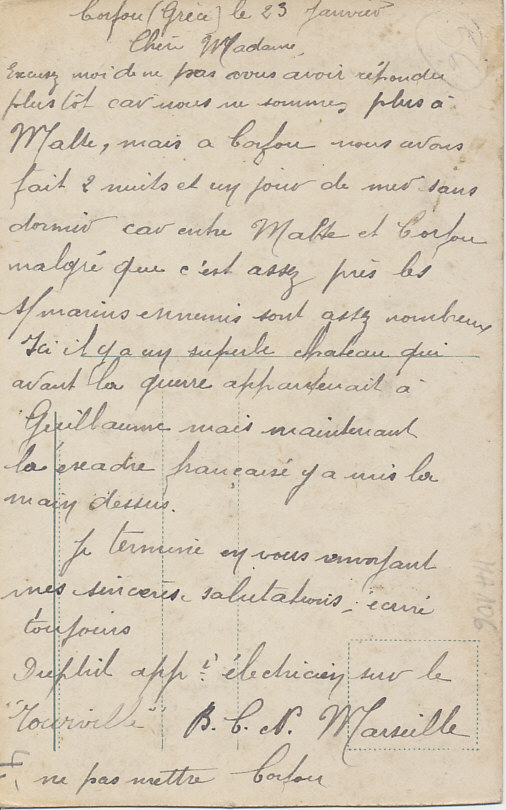 Corfou (Grèce) le 23 Janvier
Chère Madame,
Excusez moi de ne pas vous avoir répondu
plus tôt car nous ne sommes plus à
Malte, mais a Corfou nous avons
fait 2 nuits et un jour de mer sans
dormir car entre Malte et Corfou
malgré que c'est assez près les
s/marins ennemis sont assez nombreux
Ici il y a un superbe chateau qui
avant la guerre appartenait à
Guillaume mais maintenant
la escadre française y a mis la
main dessus.
Je termine en vous envoyant
mes sincères salutations,
toujours
app.ti électricien sur le
"Tourville" B. C. N. Marseille
ne pas mettre Corfou